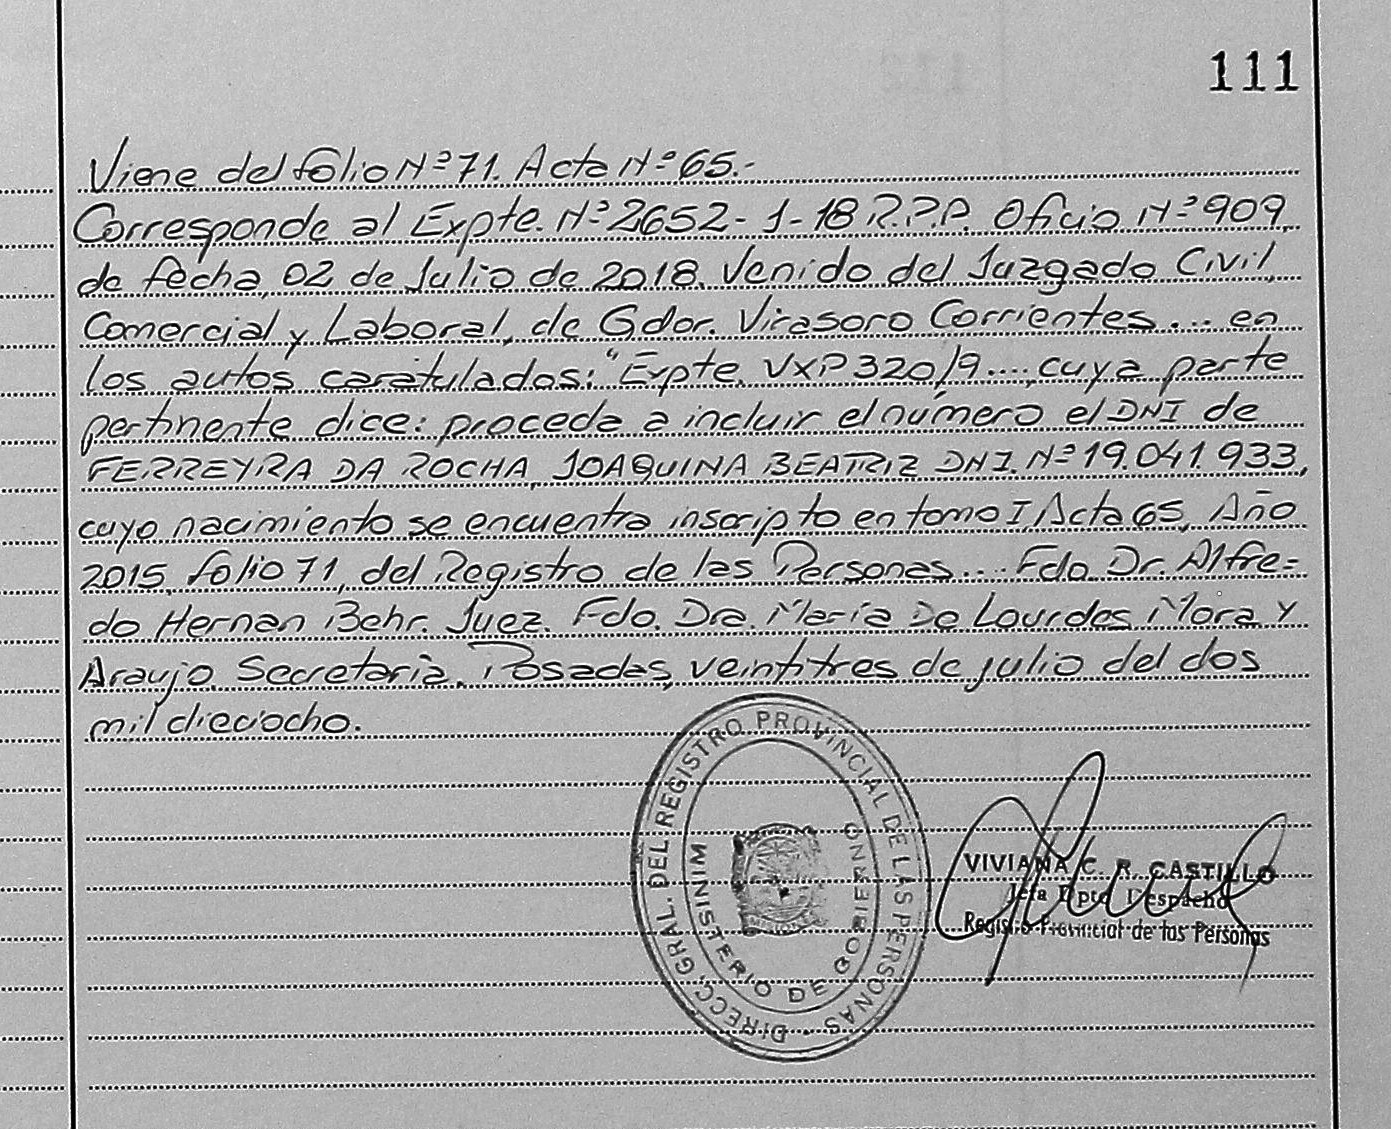 111
Viene del folio Nº 71. Acta Nº 65.-
Corresponde al Expte. Nº 2652-1-18 R.P.P. Oficio Nº 909,
de fecha, 02 de Julio de 2018. Venido del Juzgado Civil,
Comercial y Laboral, de Gdor. Virasoro Corrientes.... en
los autos caratulados: "Expte. VXP 320/9...., cuya parte
pertinente dice: proceda a incluir el número el DNI de
FERREYRA DA ROCHA, JOAQUINA BEATRIZ DNI. Nº 19.041.933,
cuyo nacimiento se encuentra inscripto en tomo I, Acta 65, Año
2015, folio 71, del Registro de las Personas.... Fdo. Dr. Alfre=
do Hernan Behr. Juez. Fdo. Dra. María De Lourdes Mora y
Araujo. Secretaria. Posadas, veintitres de julio del dos
mil dieciocho.
DIRECC. GRAL. DEL REGISTRO PROVINCIAL DE LAS PERSONAS -
MINISTERIO DE GOBIERNO
VIVIANA C. R. CASTILLO
Jefa Dpto Despacho
Registro Provincial de las Personas